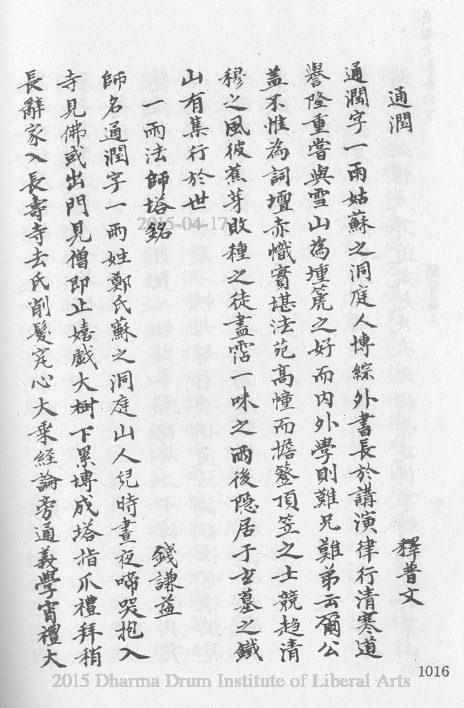 通潤
釋普文
通潤字一雨姑蘇之洞庭人博綜外書長於講演律行清寒道
譽隆重嘗與雪山為壎篪之好而內外學則難兄難弟云爾公
蓋不惟為詞壇赤幟實堪法苑高幢而擔簦頂笠之士競趨清
穆之風彼蕉芽敗種之徒盡霑一味之雨後隱居于玄墓之鐵
山有集行於世
一雨法師塔銘
錢謙益
師名通潤字一雨姓鄭氏蘇之洞庭山人兒時晝夜啼哭抱入
寺見佛或出門見僧即止嬉戲大樹下累塼成塔指爪禮拜稍
長辭家入長壽寺去氏削髮究心大乘經論旁通義學宵禮大
1016
2015-04-17
2015 Dharma Drum Institute of Liberal Arts